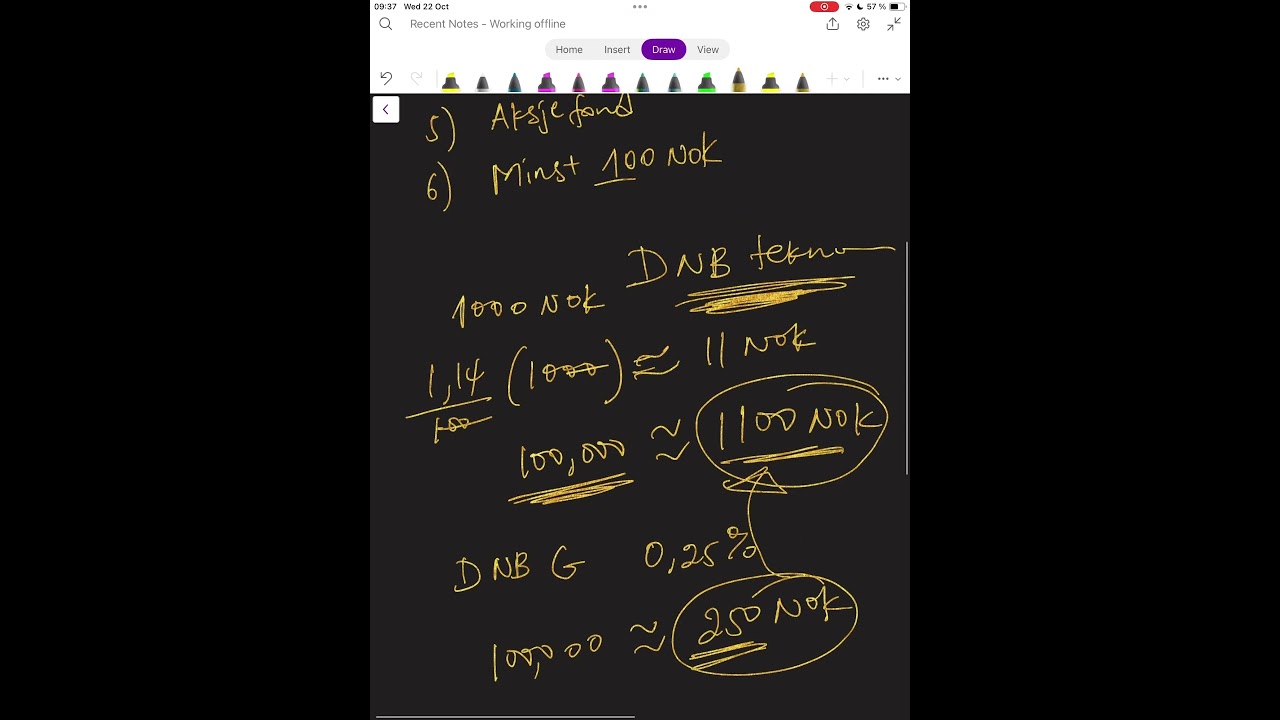 09:37 Wed 22 Oct 57 %
Recent Notes - Working offline
Home Insert Draw View
5) Aksjefond
6) Minst 100 NOK
DNB tekno
1000 NOK
1,14/100 (1000) ≈ 11 NOK
100,000 ≈ 1100 NOK
DNB G 0,25%
100,000 ≈ 250 NOK